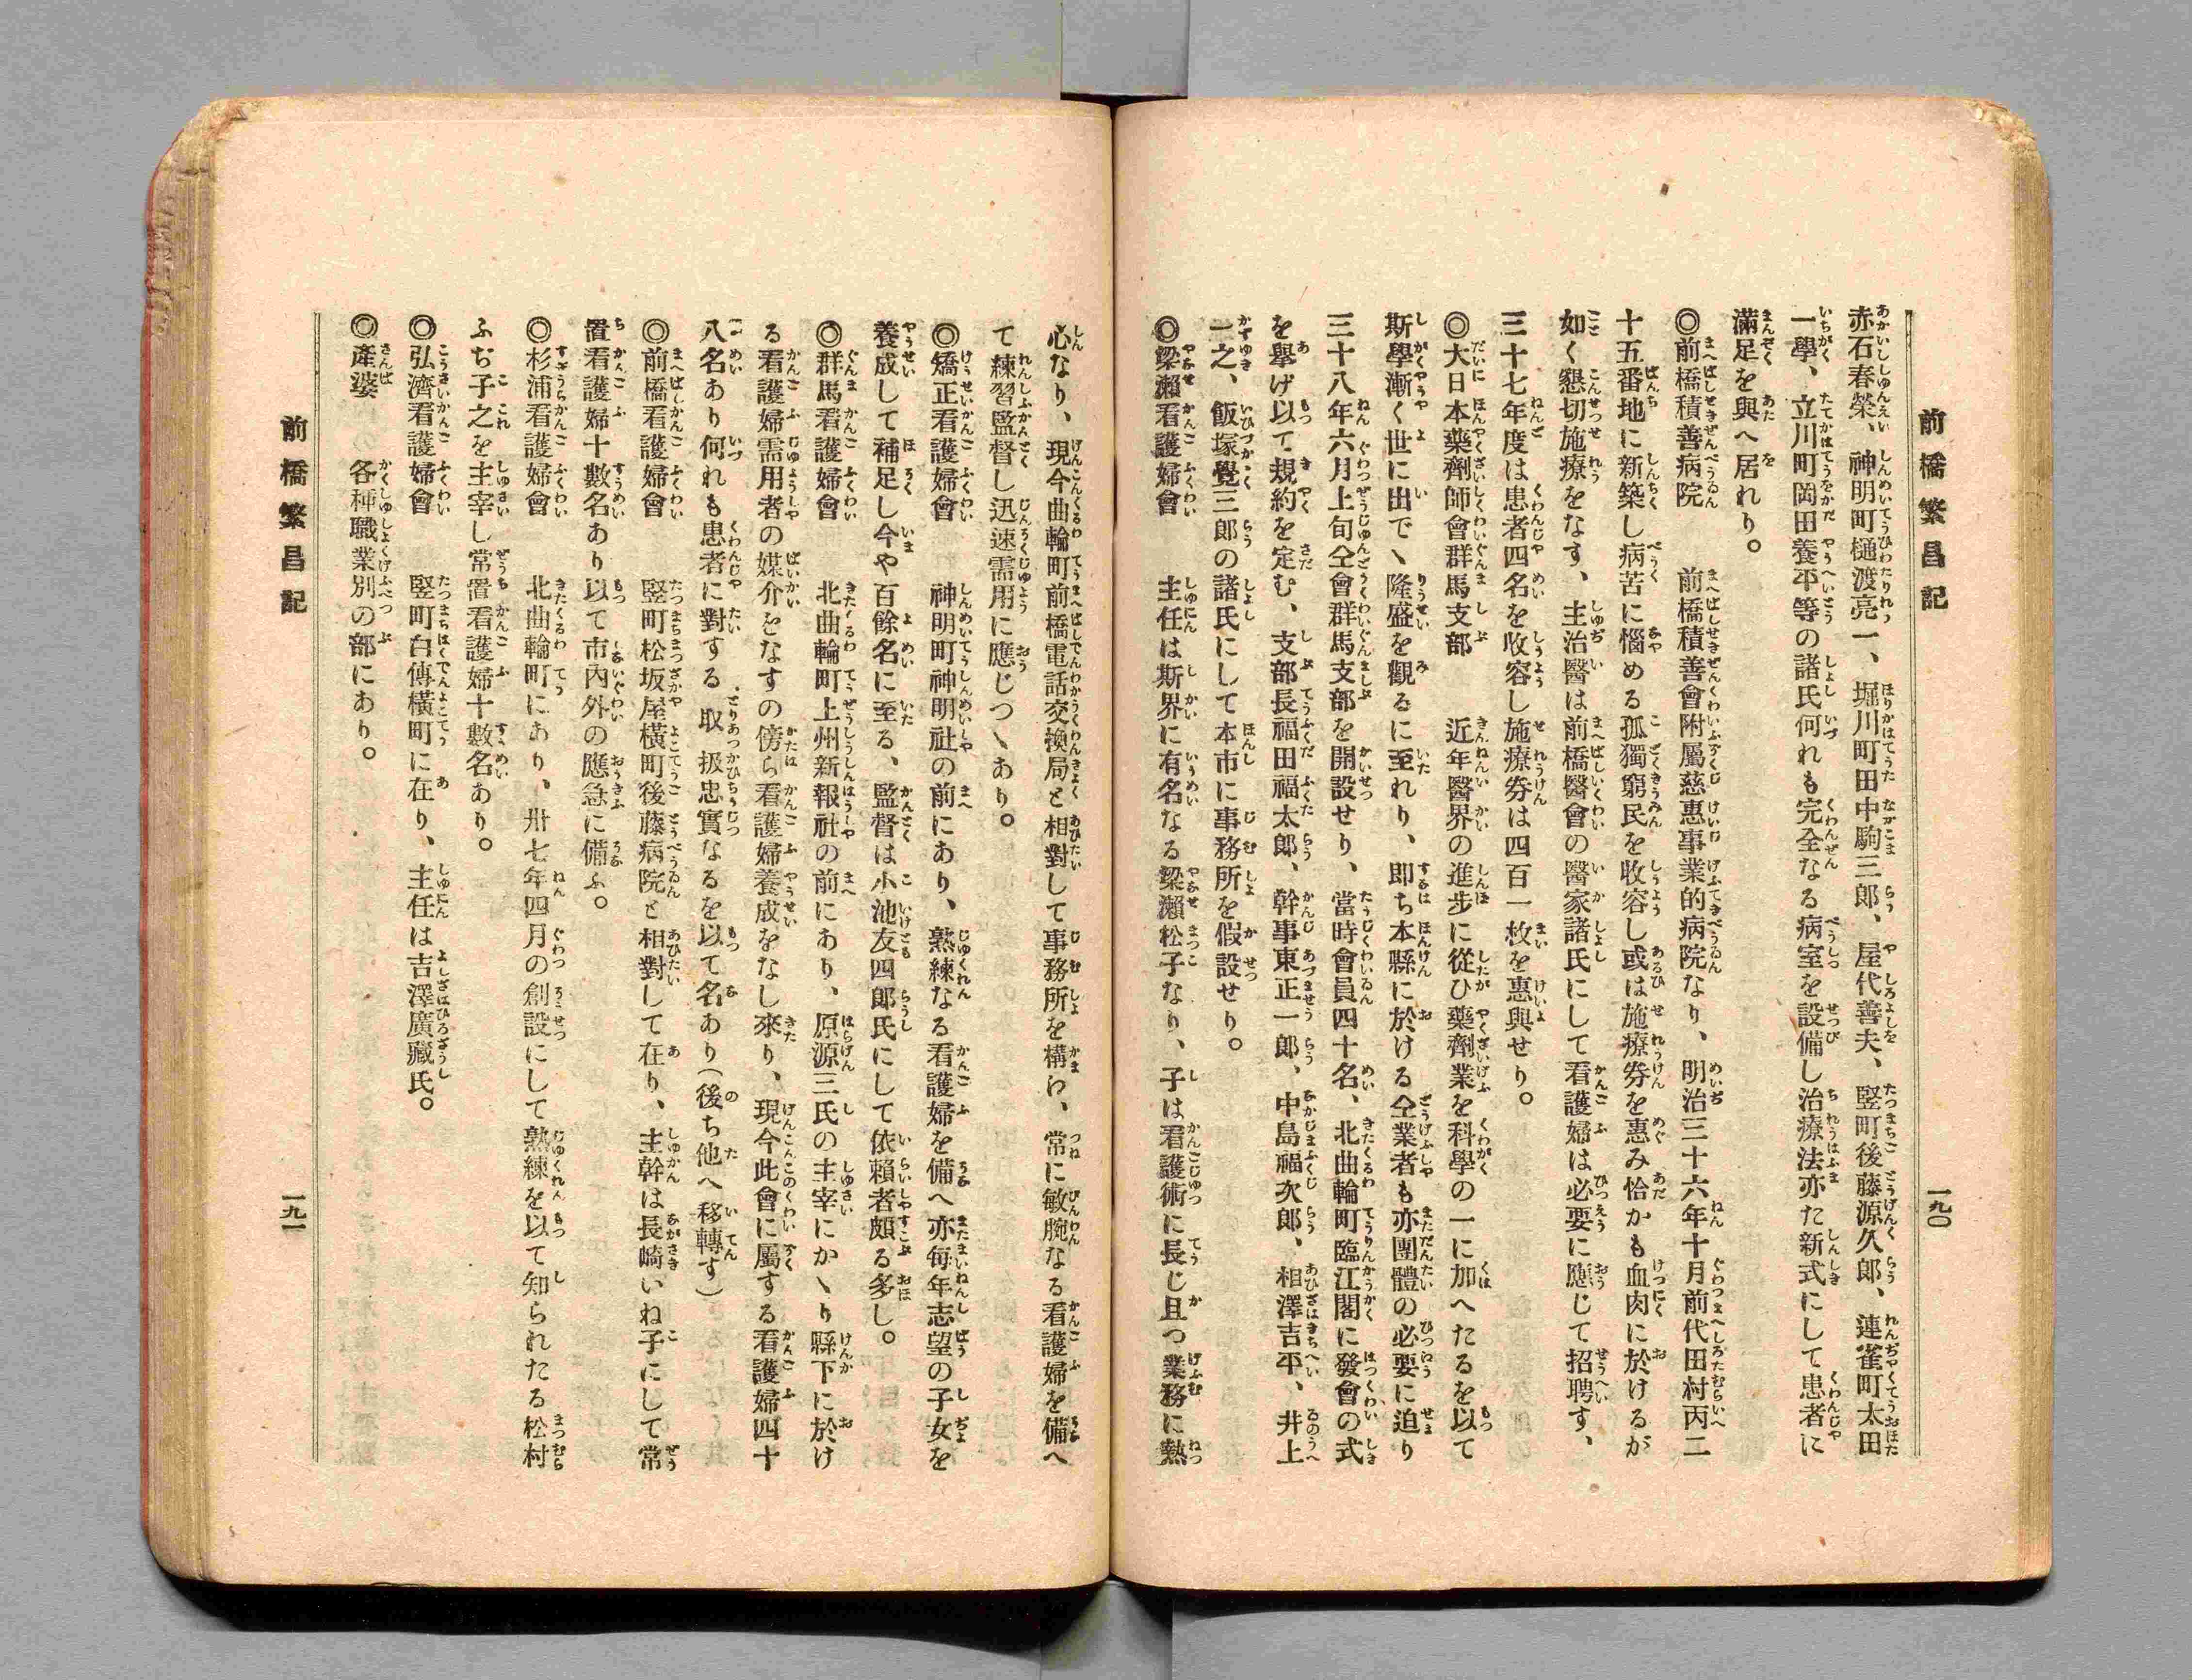 前橋繁昌記
一九〇
赤石春榮、神明町樋渡亮一、堀川町田中駒三郎、屋代善夫、竪町後藤源久郎、連雀町太田
一學、立川町岡田養平等の諸氏何れも完全なる病室を設備し治療法亦た新式にして患者に
滿足を與へ居れり。
◎前橋積善病院　前橋積善會附屬慈惠事業的病院なり、明治三十六年十月前代田村丙二
十五番地に新築し病苦に惱める孤獨窮民を收容し或は施療券を惠み恰かも血肉に於けるが
如く懇切施療をなす、主治醫は前橋醫會の醫家諸氏にして看護婦は必要に應じて招聘す、
三十七年度は患者四名を收容し施療券は四百一枚を惠與せり。
◎大日本藥劑師會群馬支部　近年醫界の進步に從ひ藥劑業を科學の一に加へたるを以て
斯學漸く世に出で丶隆盛を觀るに至れり、即ち本縣に於ける仝業者も亦團體の必要に迫り
三十八年六月上旬仝會群馬支部を開設せり、當時會員四十名、北曲輪町臨江閣に發會の式
を擧げ以て規約を定む、支部長福田福太郎、幹事東正一郎、中島福次郎、相澤吉平、井上
一之、飯塚覺三郎の諸氏にして本市に事務所を假設せり。
◎梁瀨看護婦會　主任は斯界に有名なる梁瀨松子なり、子は看護術に長じ且つ業務に熱
心なり、現今曲輪町前橋電話交換局と相對して事務所を構わ、常に敏腕なる看護婦を備へ
て練習監督し迅速需用に應じつ丶あり。
◎矯正看護婦會　神明町神明社の前にあり、熟練なる看護婦を備へ亦每年志望の子女を
養成して補足し今や百餘名に至る、監督は小池友四郎氏にして依賴者頗る多し。
◎群馬看護婦會　北曲輪町上州新報社の前にあり、原源三氏の主宰にか丶り縣下に於け
る看護婦需用者の媒介をなすの傍ら看護婦養成をなし來り、現今此會に屬する看護婦四十
八名あり何れも患者に對する取扱忠實なるを以て名あり(後ち他へ移轉す)
◎前橋看護婦會　竪町松坂屋橫町後藤病院と相對して在り、主幹は長崎いね子にして常
置看護婦十數名あり以て市內外の應急に備ふ。
◎杉浦看護婦會　北曲輪町にあり、卅七年四月の創設にして熟練を以て知られたる松村
ふぢ子之を主宰し常置看護婦十數名あり。
◎弘濟看護婦會　竪町白傳橫町に在り、主任は吉澤廣藏氏。
◎產婆　各種職業別の部にあり。
前橋繁昌記
一九一